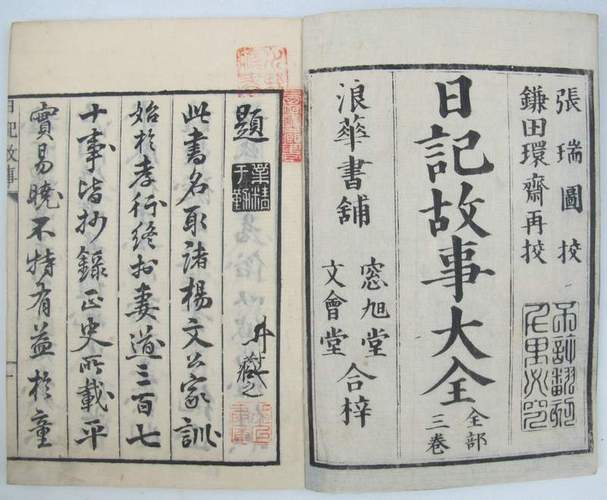 張瑞圖校
鎌田環齋再挍
日記故事大全
全部
三卷
浪華書舗
窓旭堂
文會堂
合梓
題
此書名取諸楊文公家訓
始於孝行終於妻道三百七
十事皆抄錄正史所載平
實易曉不特有益於童
日記故事